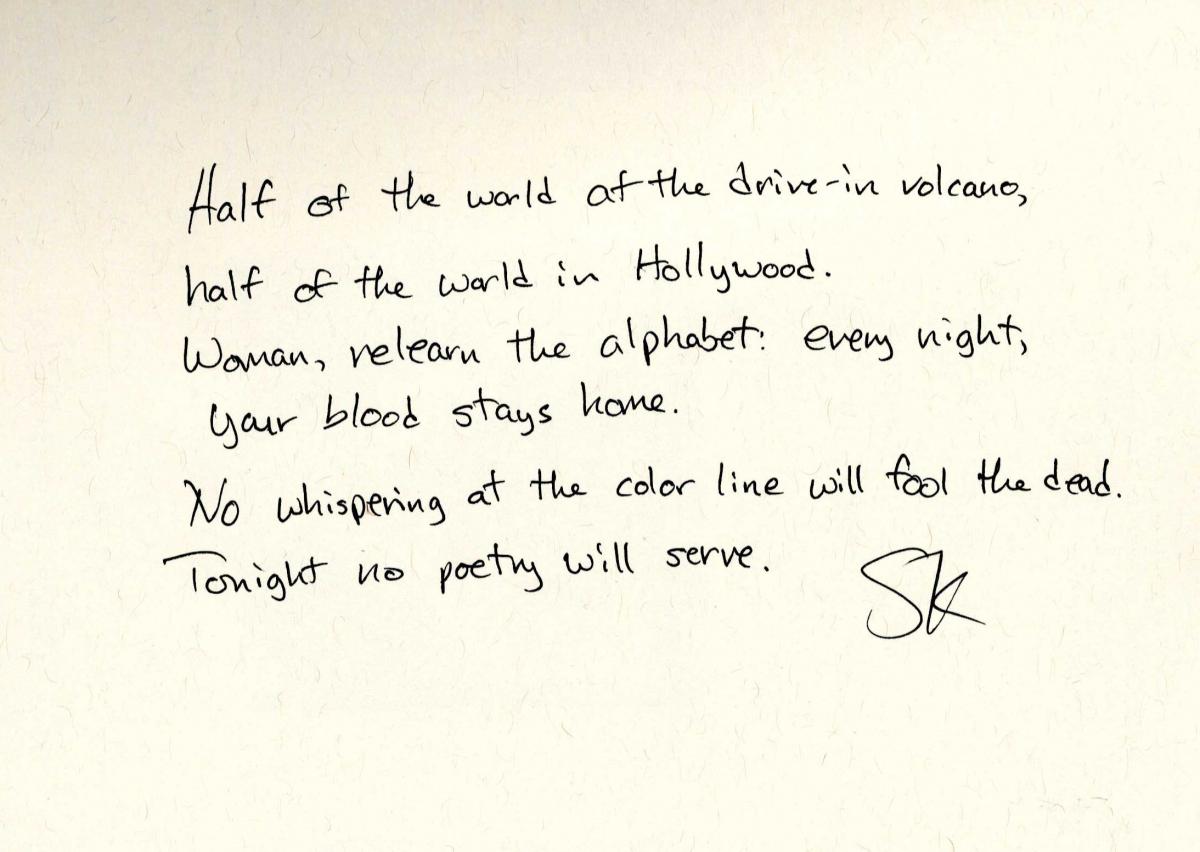 Half of the world at the drive-in volcano,
half of the world in Hollywood.
Woman, relearn the alphabet: every night,
your blood stays home.
No whispering at the color line will fool the dead.
Tonight no poetry will serve.
SK